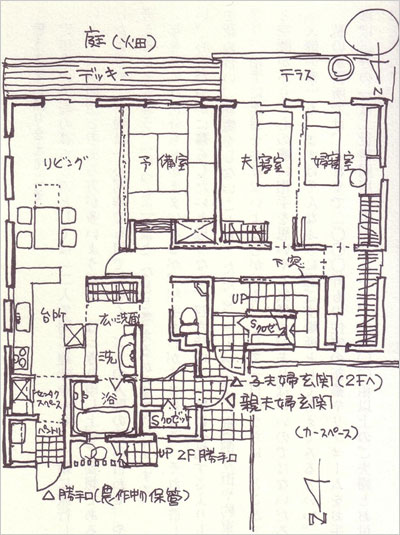 庭(畑)
デッキ
テラス
Z
リビング
予備室
夫寝室
婦寝室
下窓
台所
広い洗面
UP
Sクロゼット
洗
浴
パントリ
Sクロゼット
△子夫婦玄関(2Fへ)
◁親夫婦玄関
(カースペース)
UP 2F勝手口
△勝手口(農作物保管)
Z